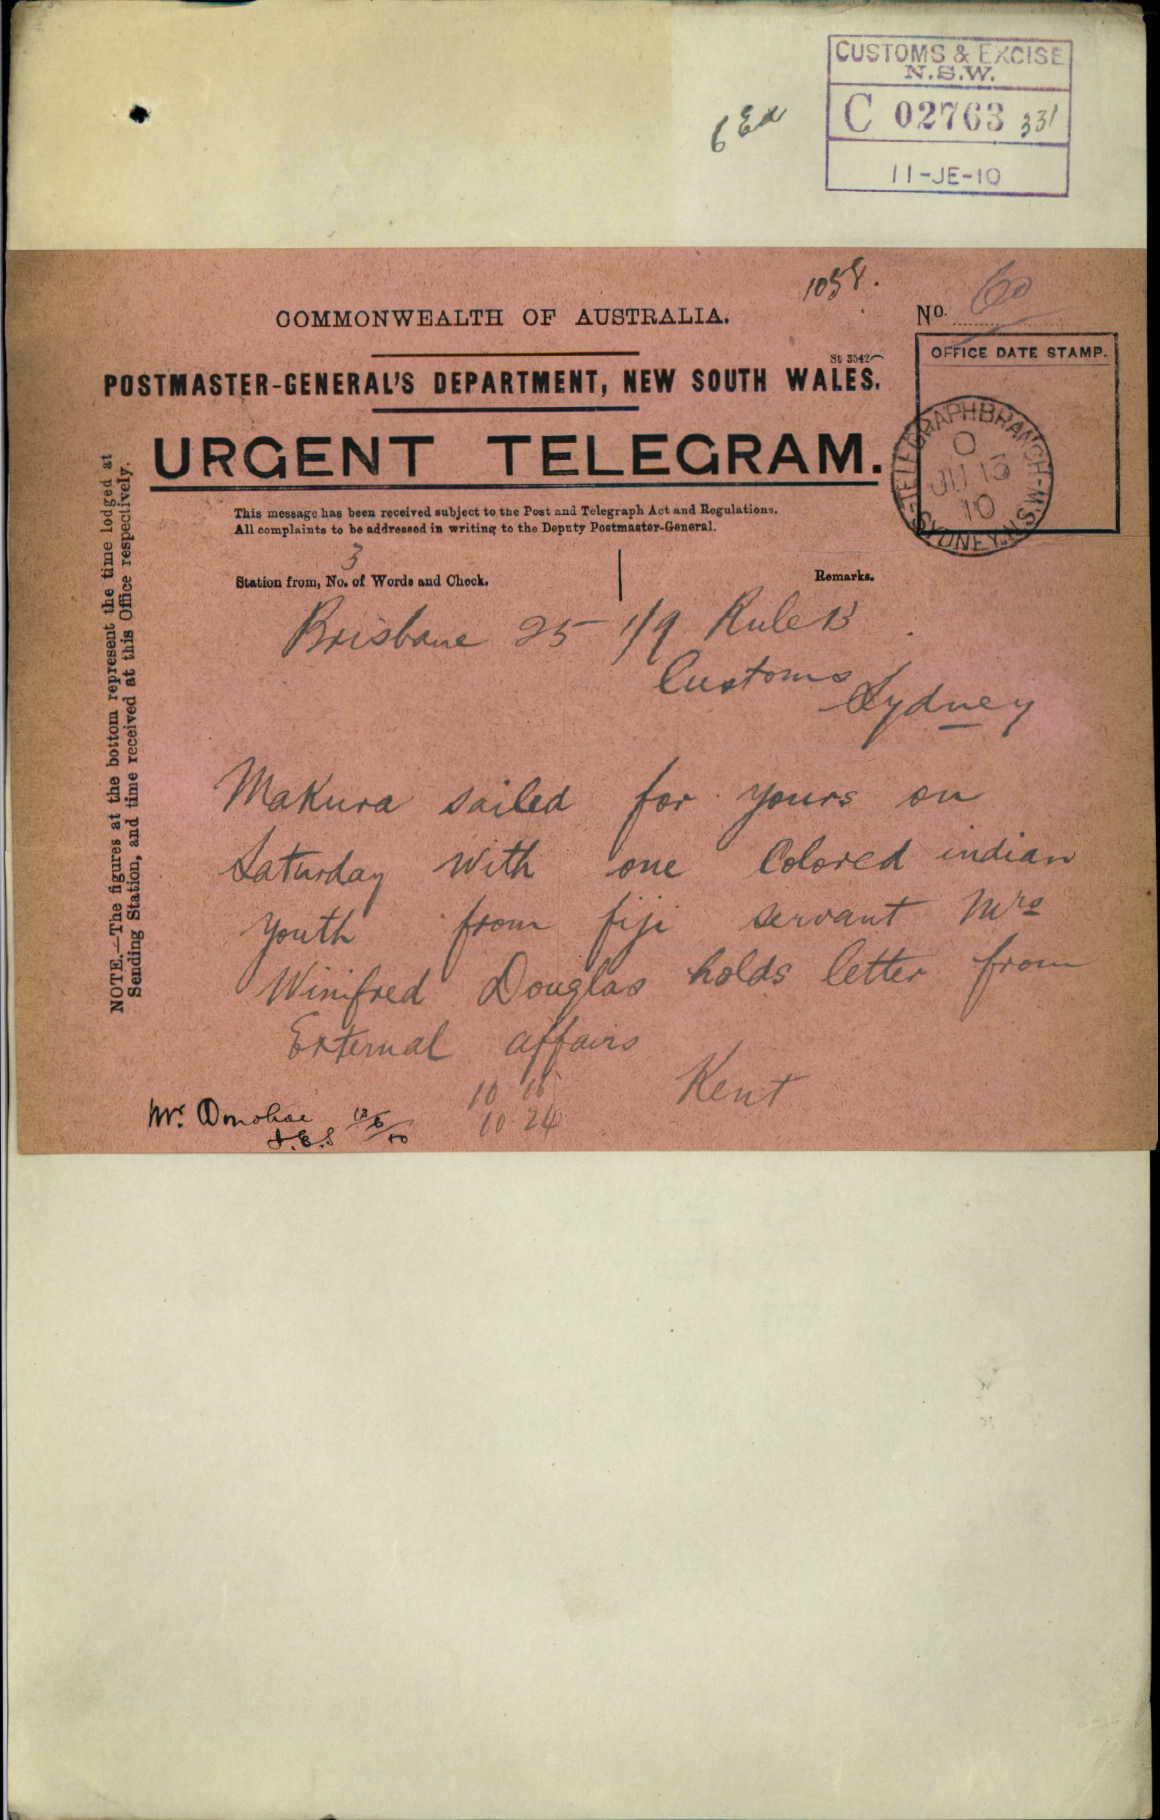 CUSTOMS & EXCISE
N.S.W.
C 02763 331
11-JE-10
6 Ex
1058.
COMMONWEALTH OF AUSTRALIA.
No. 60
St 3542
OFFICE DATE STAMP.
POSTMASTER-GENERAL'S DEPARTMENT, NEW SOUTH WALES.
URGENT TELEGRAM.
TELEGRAPH BRANCH-
O
JU 13
10
SYDNEY. N.S.W
This message has been received subject to the Post and Telegraph Act and Regulations.
All complaints to be addressed in writing to the Deputy Postmaster-General.
3
Station from, No. of Words and Check.
Remarks.
Brisbane 25 1/9 Rule B
Customs
Sydney
Makura sailed for yours on
Saturday with one Colored indian
youth from fiji servant Mrs
Winifred Douglas holds letter from
External affairs
Kent
10 16
10 24
Mr. Donohoe
13/6/10
NOTE.—The figures at the bottom represent the time lodged at
Sending Station, and time received at this Office respectively.